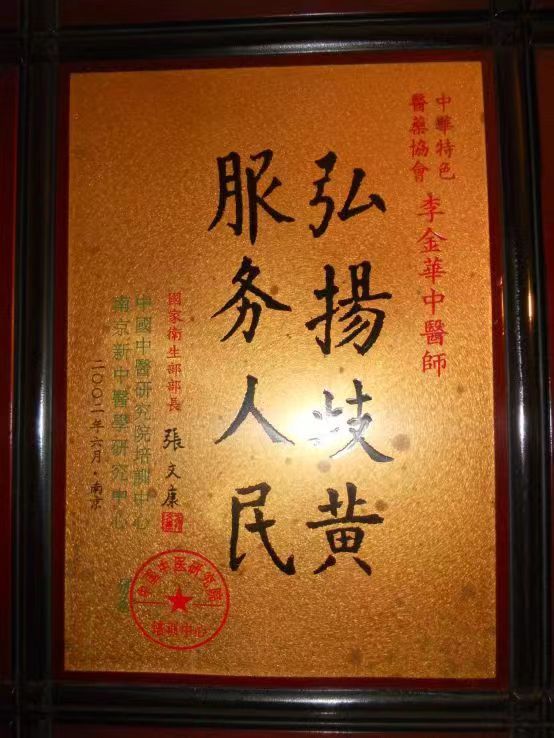 中華特色
醫藥協會
李金華中醫師
弘揚歧黄
服务人民
國家衛生部部長
張文康
中國中醫研究院培訓中心
南京新中醫學研究中心
二〇〇二年六月·南京
中国中医研究院
培训中心